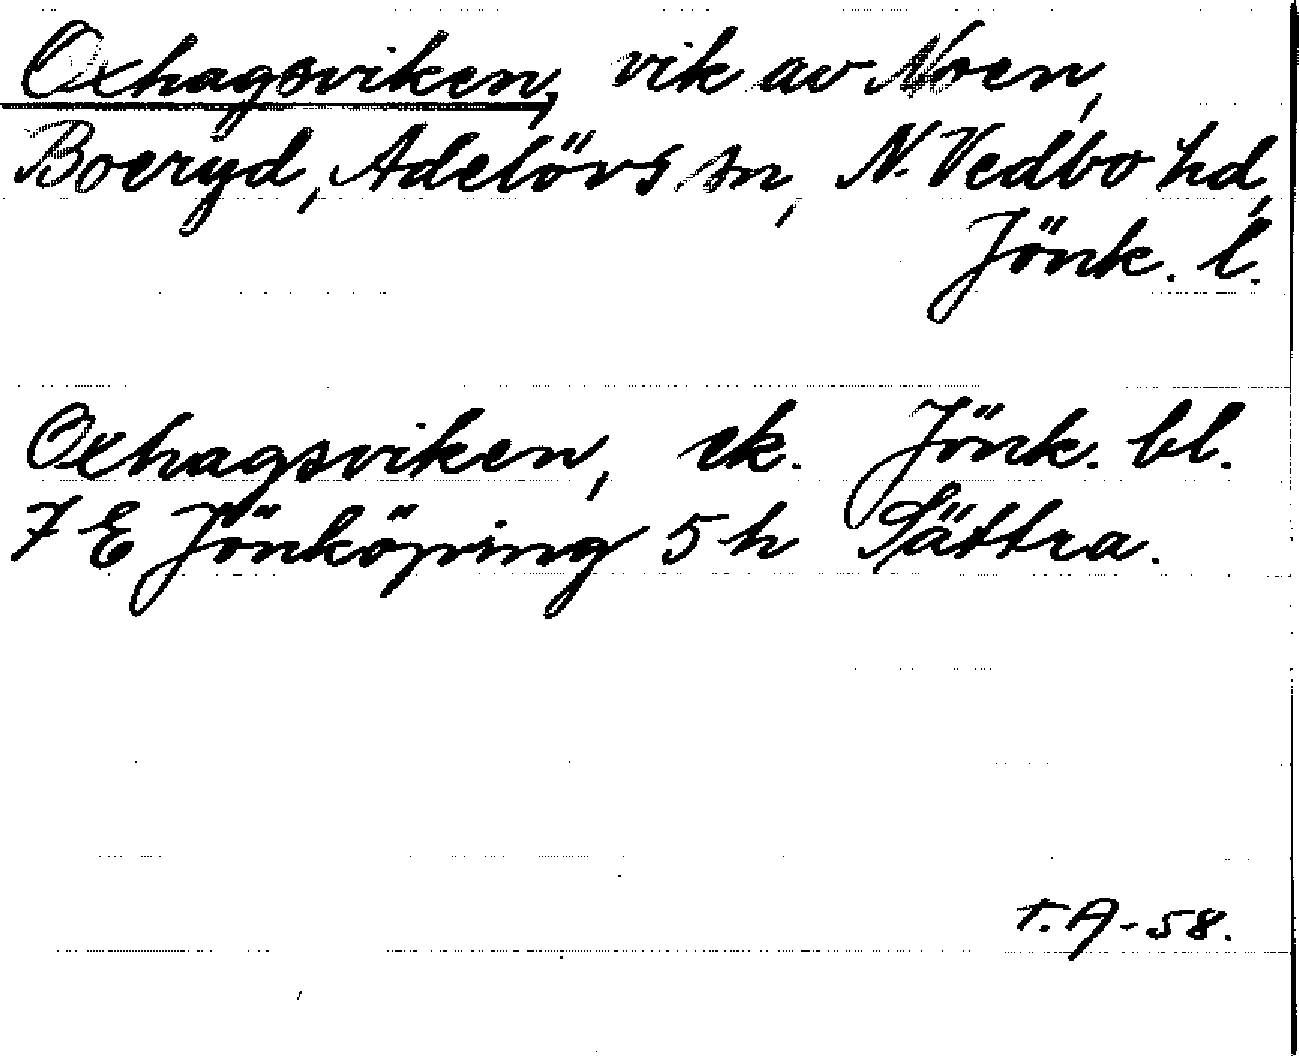 Oxhagsviken, vik av Noen,
Boeryd, Adelövs sn, N. Vedbo hd,
Jönk. l.
Oxhagsviken, ek. Jönk. bl.
7 E Jönköping 5 h Sättra.
T.A-58.